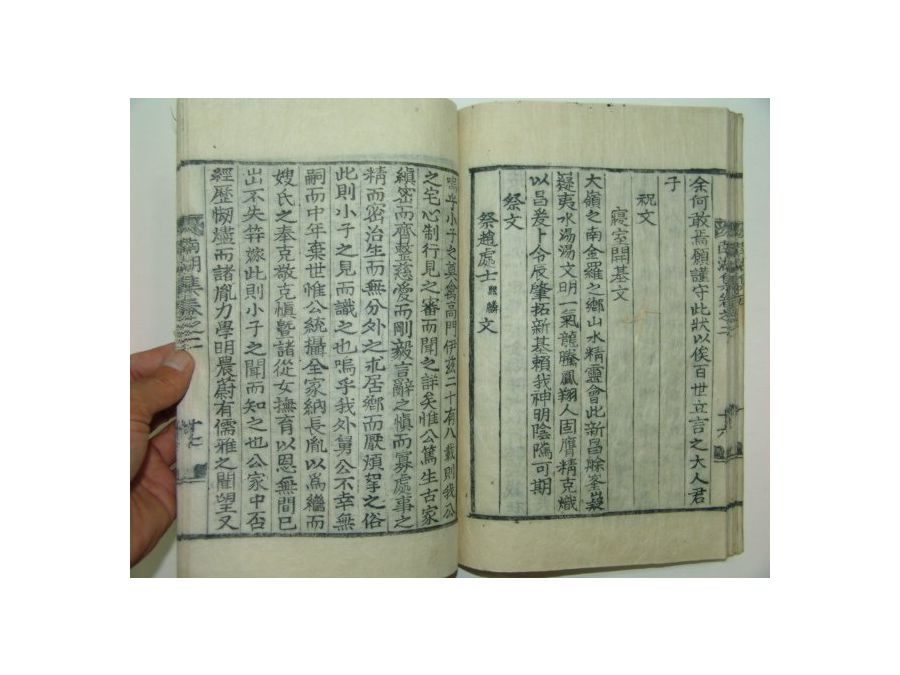 余何敢焉願謹守此狀以俟百世立言之大人君
子
祝文
寢室開基文
大嶺之南金羅之鄉山水精靈會此新昌除峯嶷
疑夷水湯湯文明一氣龍騰鳳翔人固膺精克熾
以昌爰卜令辰肇拓新基賴我神明陰隲可期
祭文
祭趙處士 文
嗚乎小子之奠禽高門伊玆二十有八載則我公
之宅心制行見之審而聞之詳矣惟公篤生古家
縝密而齊整慈愛而剛毅言辭之愼而寡處事之
精而密治生而無分外之求居鄉而厭煩挐之俗
此則小子之見而識之也嗚乎我外舅公不幸無
嗣而中年棄世惟公統攝全家納長胤以爲繼而
嫂氏之奉克敬克愼曁諸從女撫育以恩無間已
出不失笄嫁此則小子之聞而知之也公家中否
經歷懰爐而諸胤力學明農蔚有儒雅之聞望又
南湖集卷之二
十七
南湖集卷之二
十六